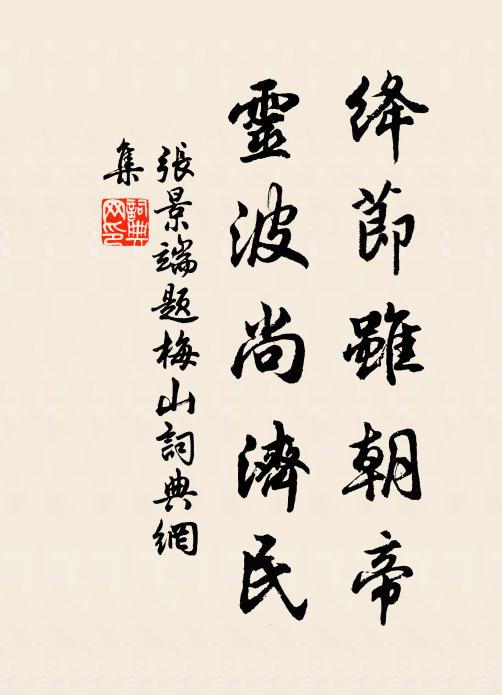 绛節雖朝帝
靈波尚濟民
張景端題梅山詞典網
集
詞典
网印